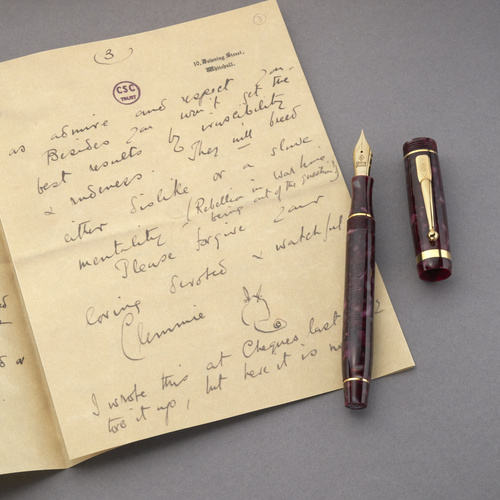 (3)
3
10, Downing Street,
Whitehall.
CSC
TRUST
as admire and respect you -
Besides you won't get the
best results by irascibility
& rudeness. They will breed
either dislike or a slave
mentality - (Rebellion in War time
being out of the question!)
Please forgive your
loving devoted & watchful
Clemmie
I wrote this at Chequers last
tore it up, but here it is now